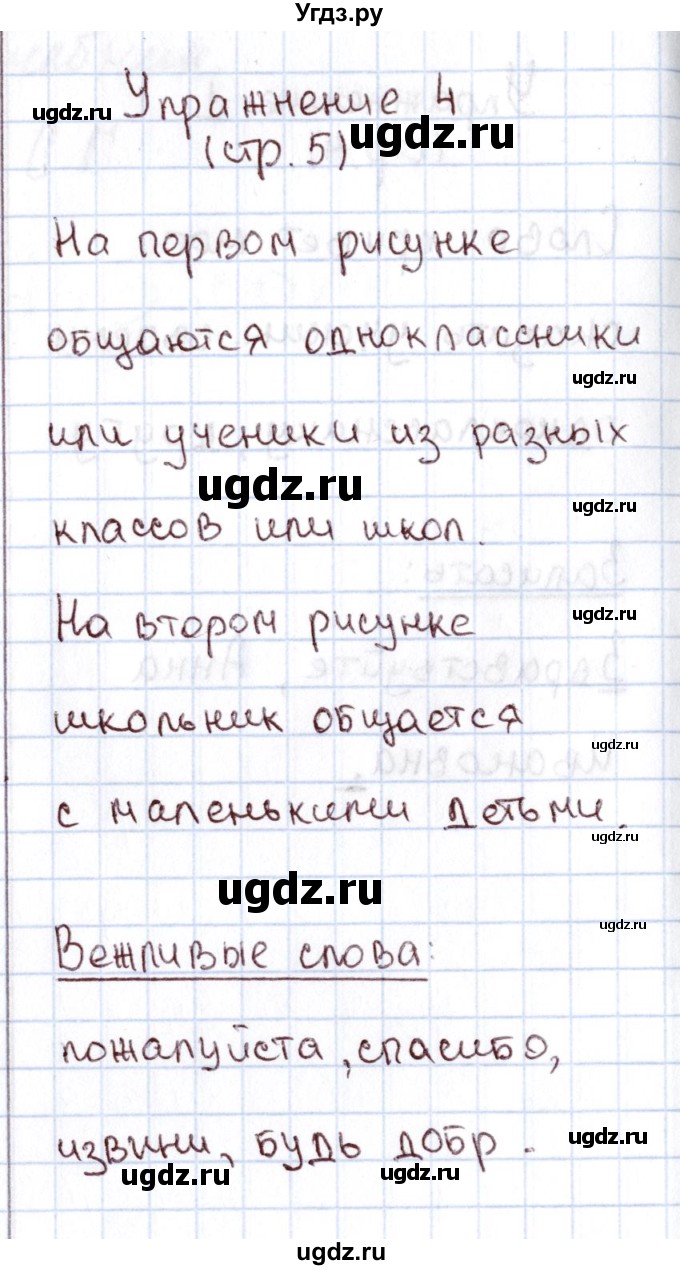 Угдз.ру
ugdz.ru
Упражнение 4
ugdz.ru
(стр. 5)
На первом рисунке
общаются одноклассники
ugdz.ru
или ученики из разных
ugdz.ru
ugdz.ru
классов или школ.
ugdz.ru
На втором рисунке
школьник общается
ugdz.ru
с маленькими детьми.
ugdz.ru
ugdz.ru
ugdz.ru
Вежливые слова:
пожалуйста, спасибо,
извини, будь добр.
ugdz.ru
ugdz.ru
ugdz.ru
ugdz.ru